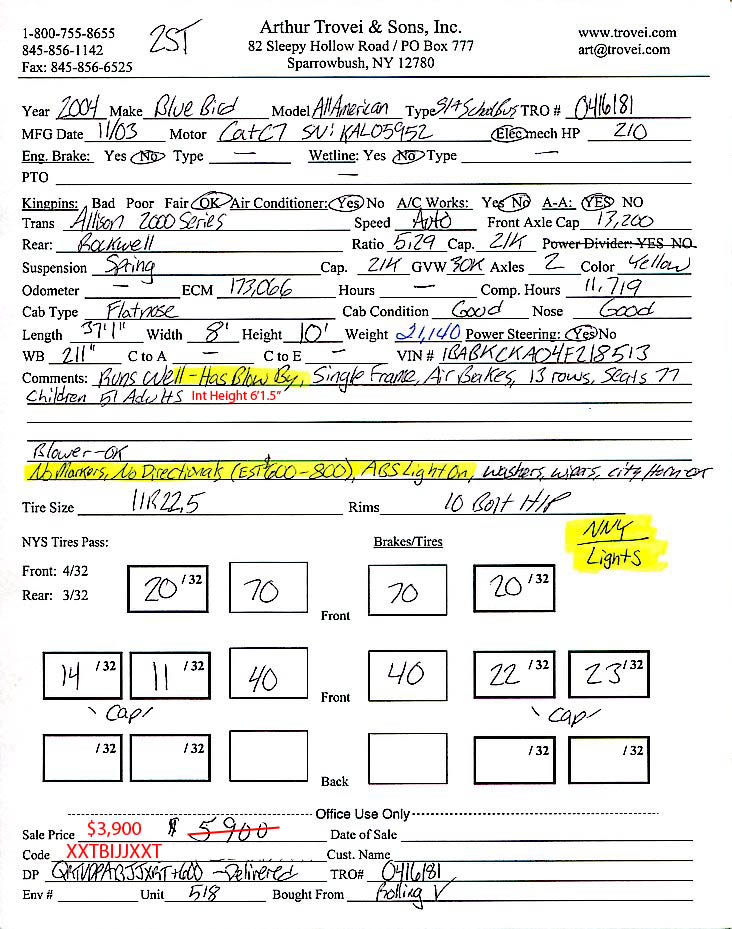 1-800-755-8655 2ST Arthur Trovei & Sons, Inc. www.trovei.com
845-856-1142 82 Sleepy Hollow Road / PO Box 777 art@trovei.com
Fax: 845-856-6525 Sparrowbush, NY 12780
Year 2004 Make Blue Bird Model All American Type S/A School Bus TRO # 0416181
MFG Date 11/03 Motor Cat C7 SN: KAL05952 Elec mech HP 210
Eng. Brake: Yes No Type — Wetline: Yes No Type —
PTO —
Kingpins: Bad Poor Fair OK Air Conditioner: Yes No A/C Works: Yes No A-A: YES NO
Trans Allison 2000 Series Speed Auto Front Axle Cap 13,200
Rear: Rockwell Ratio 5.29 Cap. 21K Power Divider: YES NO
Suspension Spring Cap. 21K GVW 30K Axles 2 Color Yellow
Odometer — ECM 173,066 Hours — Comp. Hours 11,719
Cab Type Flatnose Cab Condition Good Nose Good
Length 37'1" Width 8' Height 10' Weight 21,140 Power Steering: Yes No
WB 211" C to A — C to E — VIN # 1BABKCKA04F218513
Comments: Runs Well - Has Blow By, Single Frame, Air Brakes, 13 rows, Seats 77
Children 51 Adults Int Height 6'1.5"
Blower-OK
No Markers, No Directionals (EST $600-800), ABS Light On, washers, wipers, city Horn OK
Tire Size 11R22.5 Rims 10 Bolt H/P
NNY
Lights
NYS Tires Pass: Brakes/Tires
Front: 4/32
Rear: 3/32
20 /32 70 70 20 /32
Front
14 /32 11 /32 40 40 22 /32 23 /32
Front
Cap Cap
/32 /32 /32 /32
Back
Office Use Only
Sale Price $3,900 $ 5900 Date of Sale
Code XXTBIJJXXT Cust. Name
DP +600 - Delivered TRO# 0416181
Env # Unit 518 Bought From Rolling V